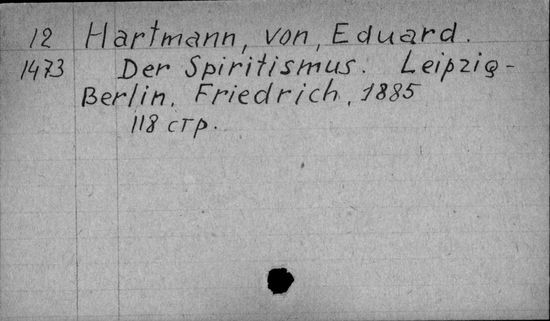 12 Hartmann, von, Eduard.
1473 Der Spiritismus. Leipzig-
Berlin, Friedrich, 1885
118 стр.